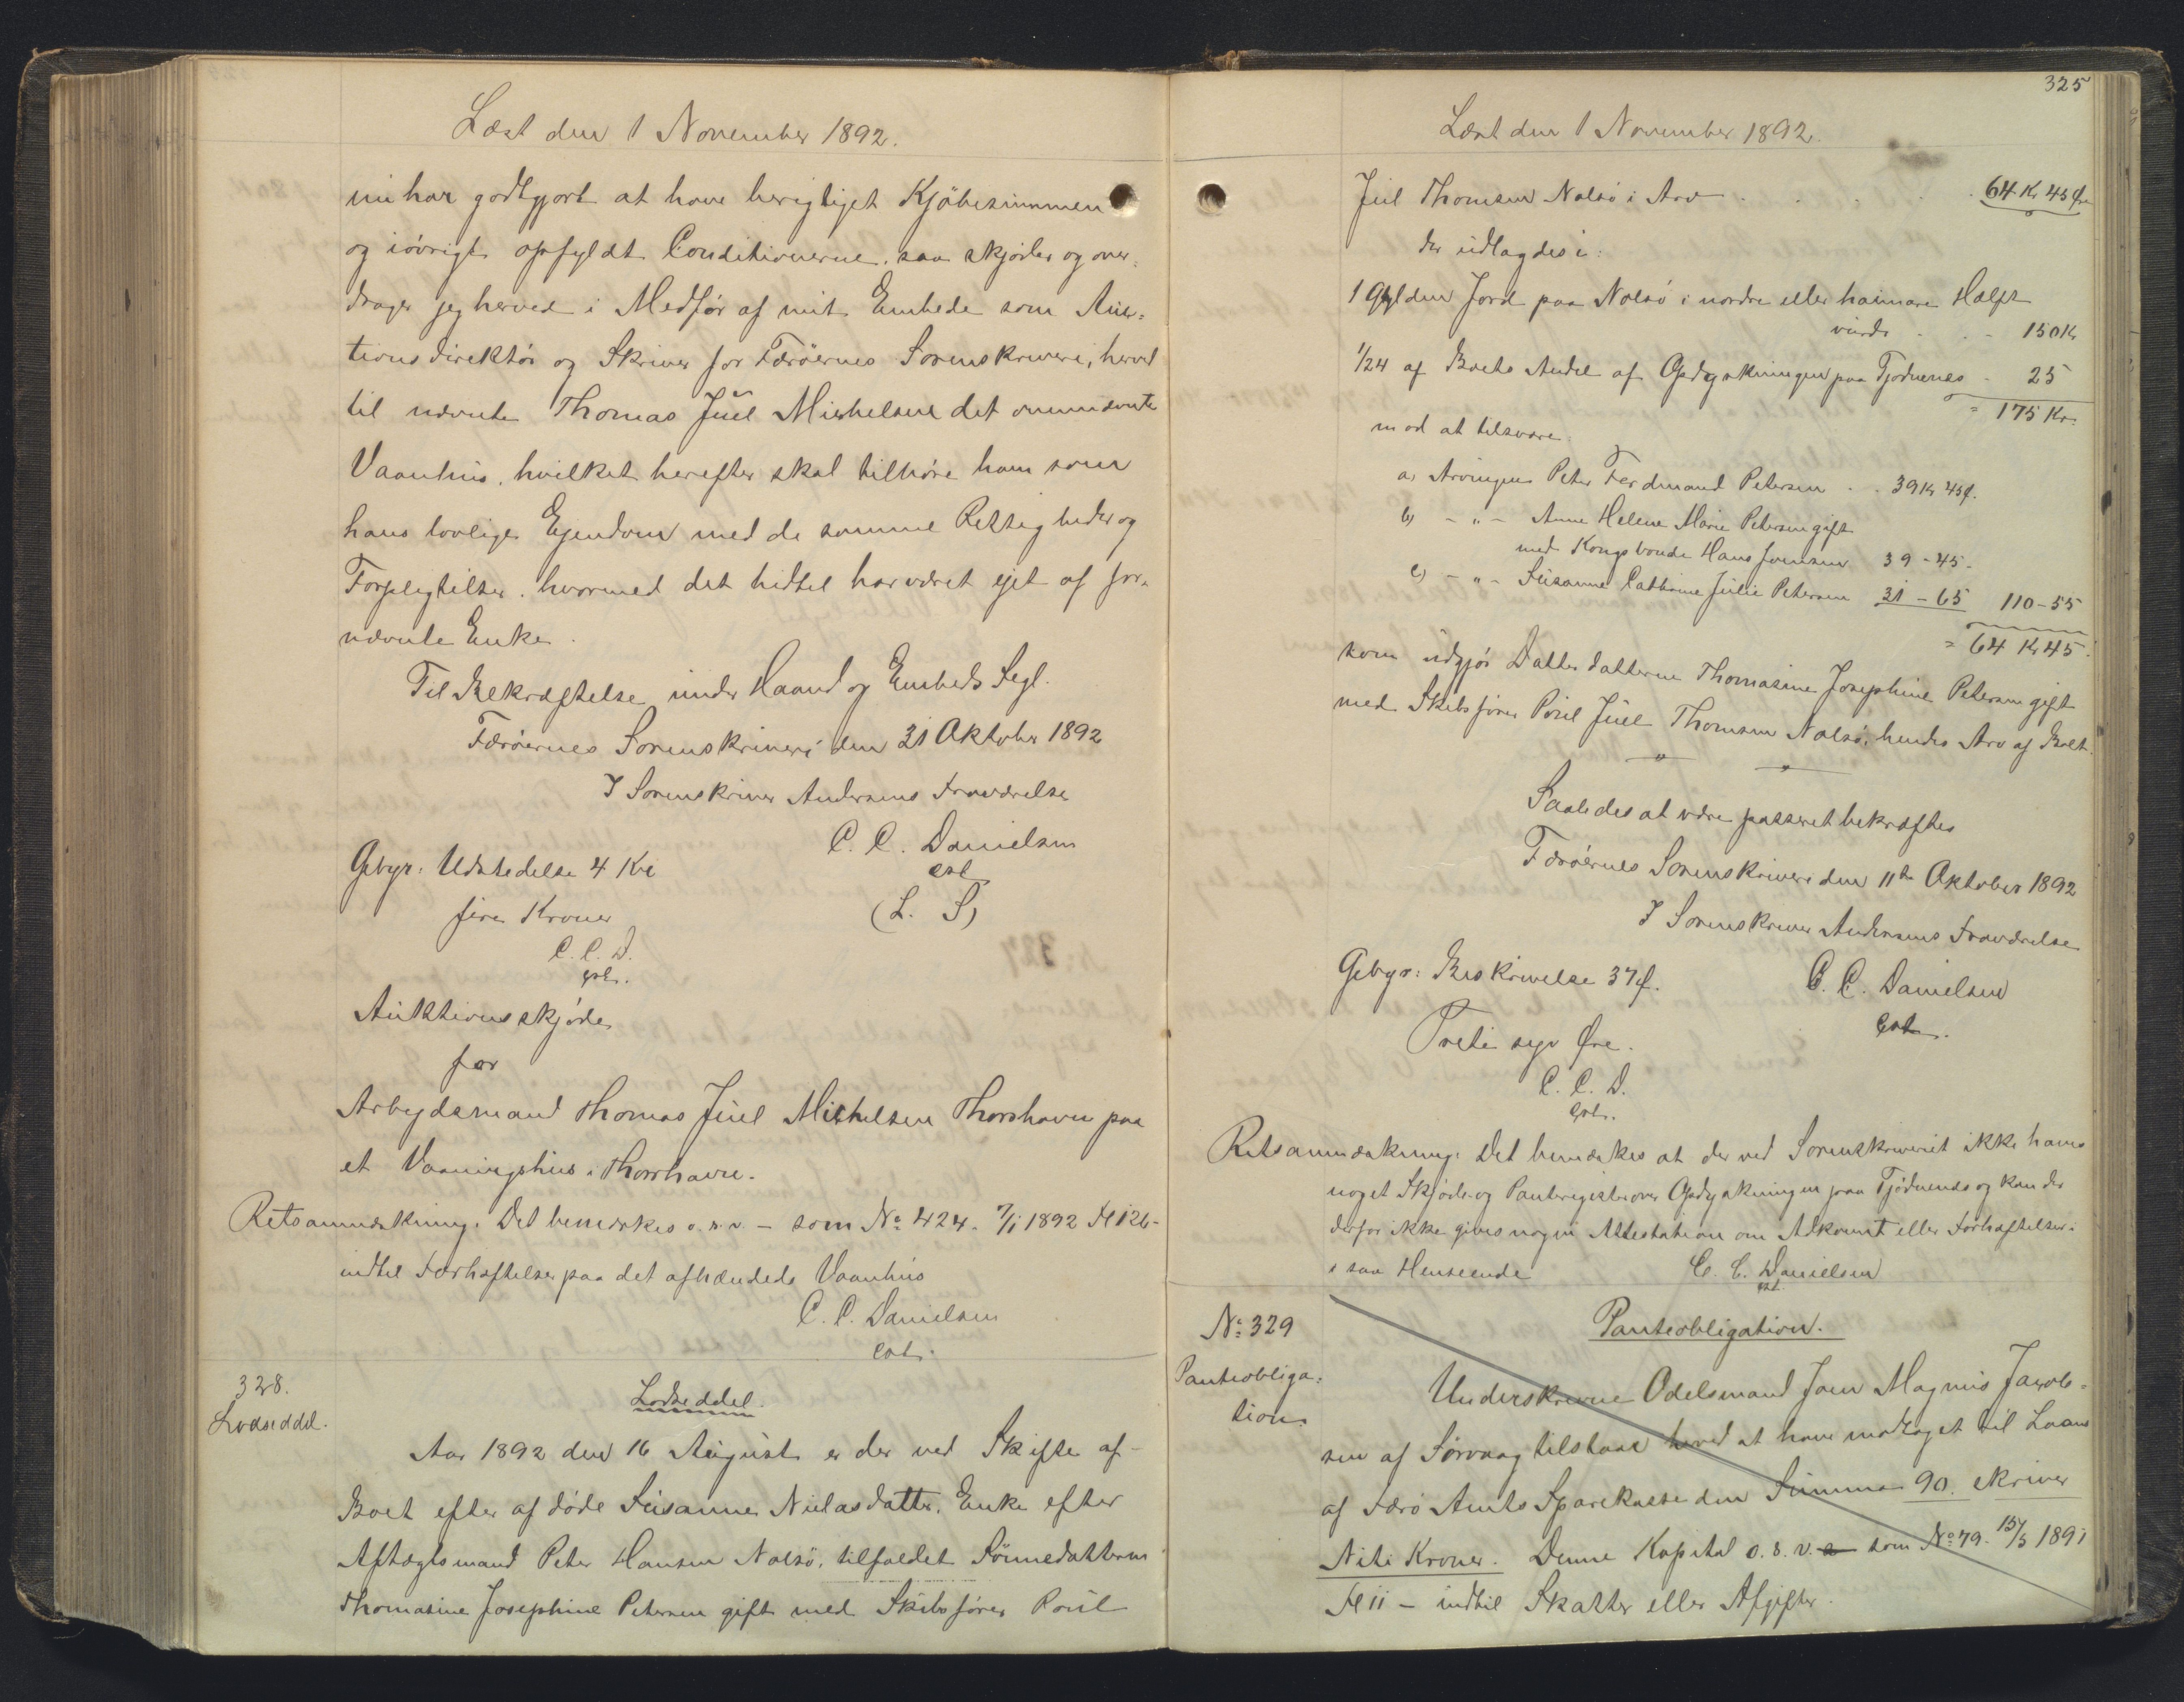 Læst den 1 November 1892.
nu har godtgjort at have berigtiget Kjöbesummen
og iövrigt opfyldt Conditionerne, saa skjöder og over-
drager jeg herved i Medfør af mit Embede som Auk-
tionsdirektör og Skriver for Færöernes Sorenskriveri, herved
til nævnte Thomas Juel Michelsen det ovennævnte
Vaanhus, hvilket herefter skal tilhöre ham som
hans lovlige Ejendom med de samme Rettigheder og
Forpligtelser, hvormed det hidtil har været ejet af for-
nævnte Enke.
Til Bekræftelse under Haand og Embeds Segl.
Færöernes Sorenskriveri den 31 Oktober 1892
I Sorenskriver Andersens Fraværelse
C. C. Danielsen
cst.
Gebyr: Udstedelse 4 Kr
(L. S)
fire Kroner
C. C. D.
cst.
Auktionsskjöde
for
Arbejdsmand Thomas Juel Michelsen Thorshavn paa
et Vaaningshus i Thorshavn.
Retsanmærkning. Det bemærkes o.s.v. – som No 424. 7/1 1892 Fl 126-
indtil Forhæftelser paa det afhændede Vaanhus
C. C. Danielsen
cst.
328.
Lodseddel.
Lodseddel.
Aar 1892 den 16 August er der ved Skifte af
Boet efter afdöde Susanne Nielasdatter, Enke efter
Aftægtsmand Peter Hansen Nolsö, tilfaldet Sönnedatteren
Thomasine Josephine Petersen gift med Skibsförer Poul
325
Læst den 1 November 1892.
Juel Thomsen Nolsö i Arv . . . . 64 Kr 45 Øre
der udlagdes i:
1 Gylden Jord paa Nolsö i nordre eller haimare Hælft
vurd. . . - 150 Kr
1/24 af Boets Andel af Opdyrkningen paa Tjödnenes - 25
= 175 Kr.
mod at tilsvare:
a, Arvingen Peter Ferdinand Petersen . . 39 Kr 45 Ø.
b, - „ - Anne Helene Marie Petersen gift
med Kongsbonde Hans Joensen 39 - 45 -
c, - „ - Susanne Cathrine Julie Petersen 31 - 65 110 - 55
= 64 Kr 45.
som udgjör Datterdatteren Thomasine Josephine Petersen gift
med Skibsförer Poul Juel Thomsen Nolsö, hendes Arv af Boet.
Saaledes at være passeret bekræftes
Færöernes Sorenskriveri den 11te Oktober 1892
I Sorenskriver Andersens Fraværelse
Gebyr: Beskrivelse 37 Ø. C. C. Danielsen
Treti syv Øre. cst.
C. C. D.
cst.
Retsanmærkning. Det bemærkes at der ved Sorenskriveriet ikke haves
noget Skjöde- og Panteregister over Opdyrkningen paa Tjödnenes og kan der
derfor ikke gives nogen Attestation om Adkomst eller Forhæftelser
i saa Henseende C. C. Danielsen
cst.
No 329
Panteobliga-
tion.
Panteobligation.
Underskrevne Odelsmand Joen Magnus Jacob-
sen af Sörvaag tilstaar herved at have modtaget til Laans
af Færö Amts Sparekasse den Summa 90. skriver
Niti Kroner. Denne Kapital o.s.v. som No 79. 15/5 1891
Fl 11 – indtil Skatter eller Afgifter.